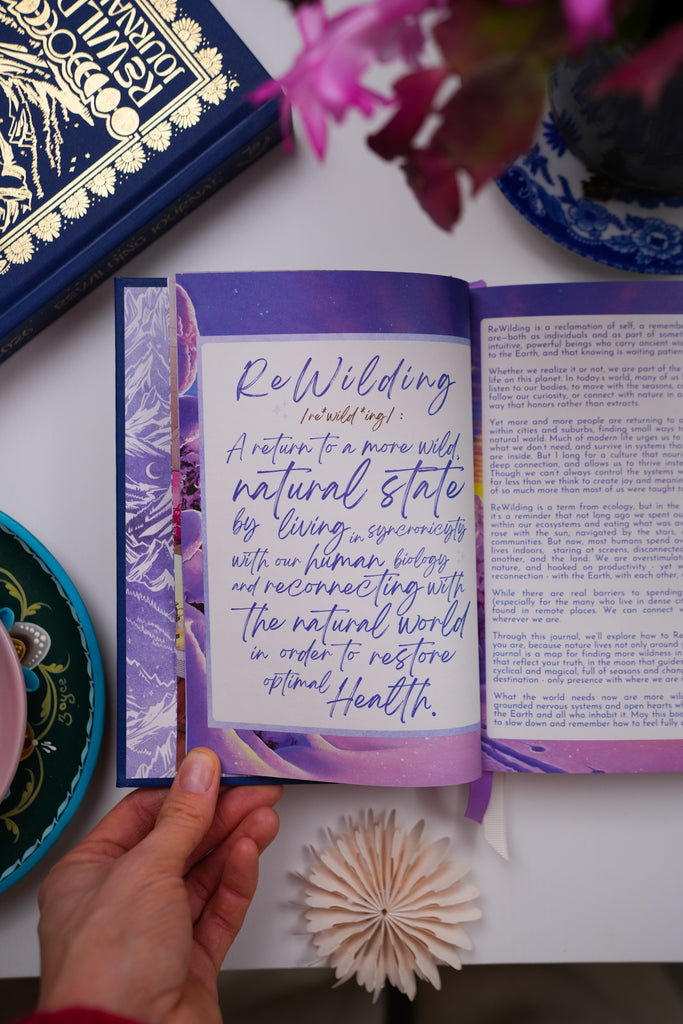 REWILDI
JOURNAL
REWILDING JOURNAL
2026
ReWilding
/re*wild*ing/ :
A return to a more wild,
natural state
by living in syncronicity
with our human biology
and reconnecting with
the natural world
in order to restore
optimal Health.
ReWilding is a reclamation of self, a remembe
are—both as individuals and as part of somet
intuitive, powerful beings who carry ancient wis
to the Earth, and that knowing is waiting patien
Whether we realize it or not, we are part of the
life on this planet. In today's world, many of us
listen to our bodies, to move with the seasons, c
follow our curiosity, or connect with nature in a
way that honors rather than extracts.
Yet more and more people are returning to a
within cities and suburbs, finding small ways t
natural world. Much of modern life urges us to
what we don't need, and survive in systems tha
are inside. But I long for a culture that nouri
deep connection, and allows us to thrive inste
Though we can't always control the systems w
far less than we think to create joy and meanin
of so much more than most of us were taught t
ReWilding is a term from ecology, but in the
it's a reminder that not long ago we spent ou
within our ecosystems and eating what was av
rose with the sun, navigated by the stars,
communities. But now, most humans spend ov
lives indoors, staring at screens, disconnecte
another, and the land. We are overstimulat
nature, and hooked on productivity - yet w
reconnection - with the Earth, with each other,
While there are real barriers to spending
(especially for the many who live in dense cit
found in remote places. We can connect w
wherever we are.
Through this journal, we'll explore how to Re
you are, because nature lives not only around
journal is a map for finding more wildness in
that reflect your truth, in the moon that guide
cyclical and magical, full of seasons and chan
destination - only presence with where we are
What the world needs now are more wil
grounded nervous systems and open hearts wh
the Earth and all who inhabit it. May this boo
to slow down and remember how to feel fully
Boyce